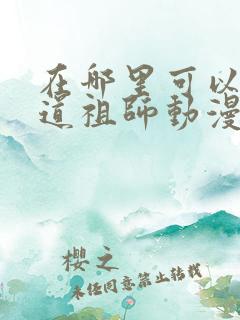 在哪里可以
道祖師動漫
櫻之
未经同意禁止转载